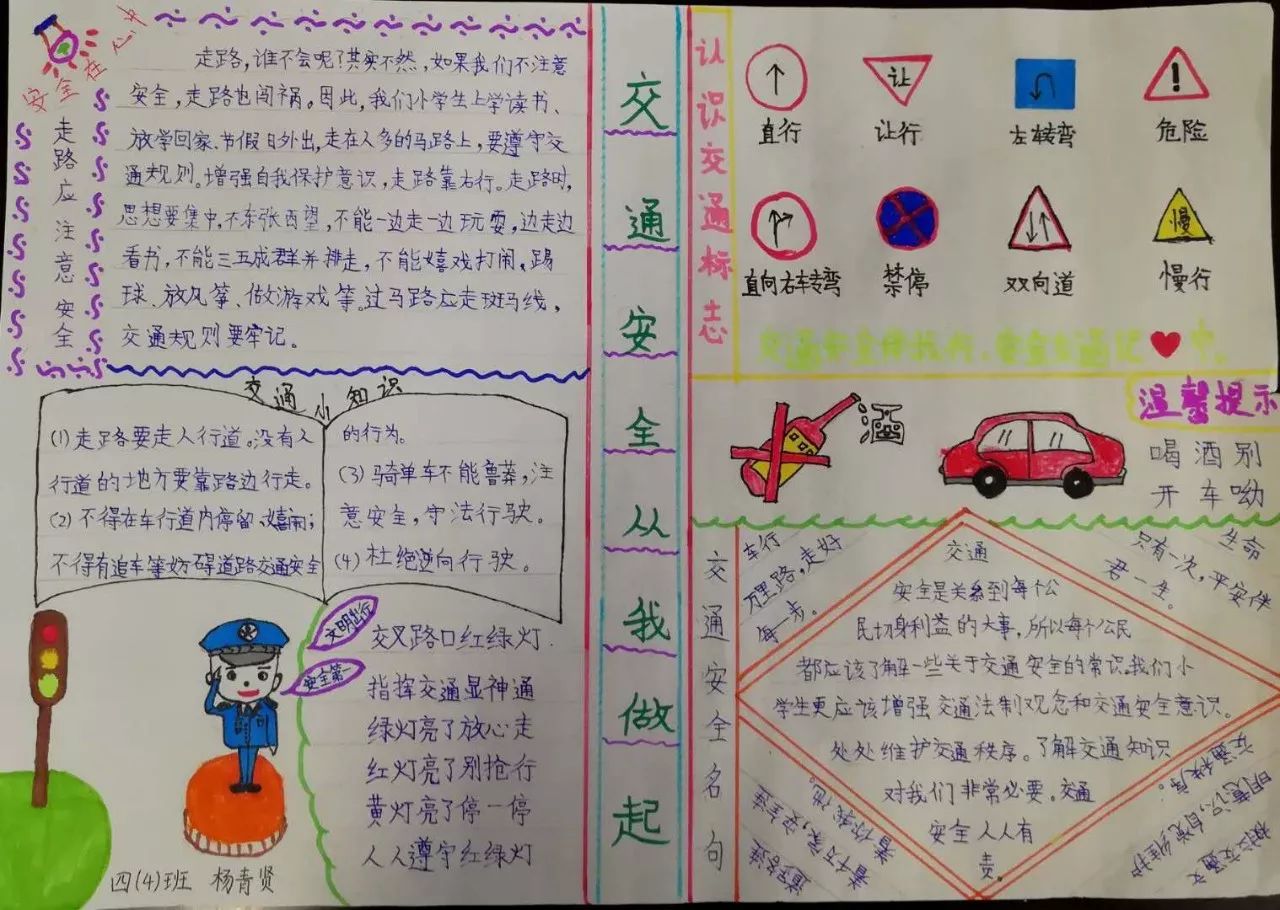 安全在心中
走路应注意安全
走路,谁不会呢?其实不然,如果我们不注意
安全,走路也闯祸。因此,我们小学生上学读书、
放学回家、节假日外出,走在人多的马路上,要遵守交
通规则。增强自我保护意识,走路靠右行。走路时,
思想要集中,不东张西望,不能一边走一边玩耍,边走边
看书,不能三五成群并排走,不能嬉戏打闹、踢
球、放风筝、做游戏等。过马路应走斑马线,
交通规则要牢记。
交通小知识
(1)走路要走人行道。没有人
行道的地方要靠路边行走。
(2)不得在车行道内停留、嬉闹;
不得有追车等妨碍道路交通安全
的行为。
(3)骑单车不能鲁莽,注
意安全,守法行驶。
(4)杜绝逆向行驶。
文明出行
安全第一
交叉路口红绿灯.
指挥交通显神通
绿灯亮了放心走
红灯亮了别抢行
黄灯亮了停一停
人人遵守红绿灯
四(4)班 杨青贤
交通安全从我做起
认识交通标志
直行
让
让行
左转弯
!
危险
直向右转弯
禁停
双向道
慢
慢行
温馨提示
酒
喝酒别
开车呦
交通安全名句
车行
万里路,走好
每一步。
生命
只有一次,平安伴
君一生。
交通
安全是关系到每个公
民切身利益的大事,所以每个公民
都应该了解一些关于交通安全的常识。我们小
学生更应该增强交通法制观念和交通安全意识。
处处维护交通秩序。了解交通知识
对我们非常必要。交通
安全人人有
责。